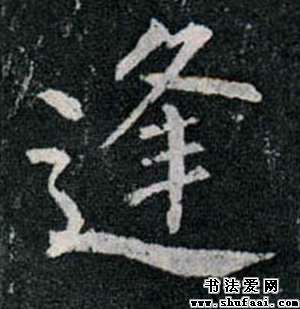 逢
书法爱网
www.shufaai.com